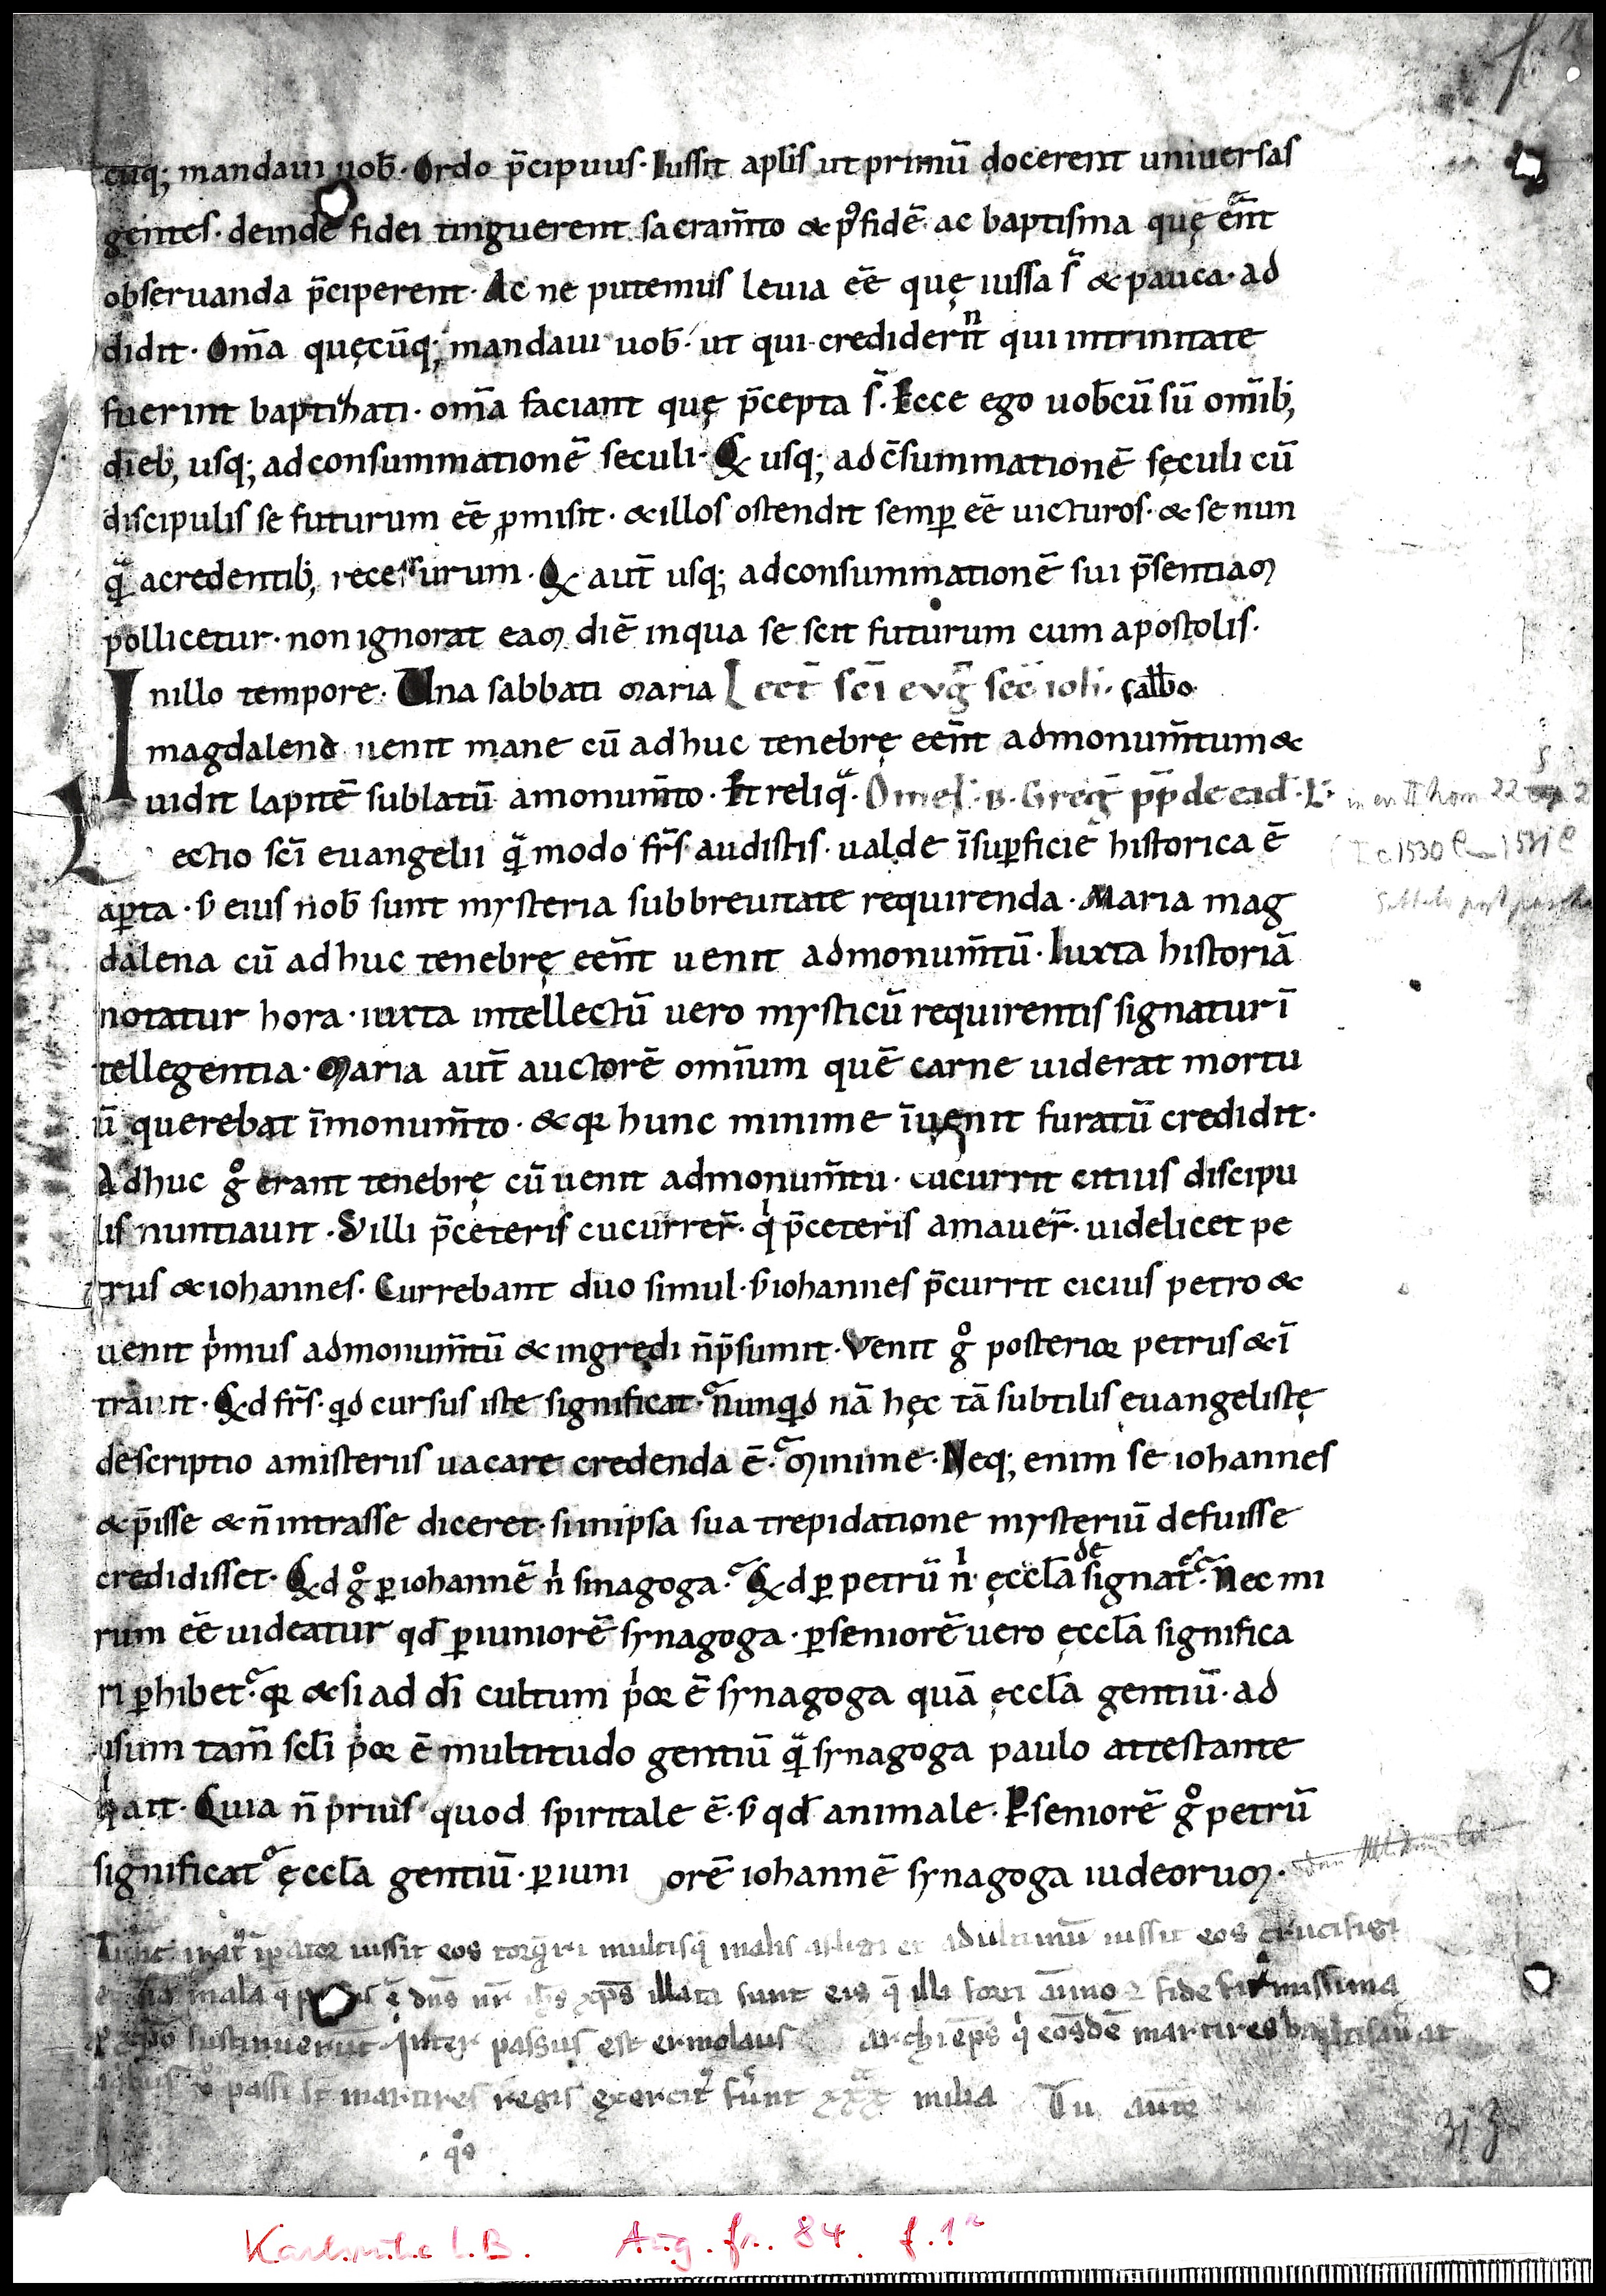 cūq; mandaui uob̄. Ordo p̄cipuus. Iussit apl̄is ut primū docerent uniuersas
gentes. deinde fidei tinguerent sacram̄to & p᷒ fidē. ac baptisma quę er̄ant
obseruanda p̄ciperent. Ac ne putemus leuia eē̄ quę iussa s̄ & pauca. ad
didit. Om̄a quęcūq; mandaui uob̄. ut qui crediderint qui intrinitate
fuerint baptihati. om̄a faciant quę p̄cepta s̄. Ecce ego uob̄cū sū om̄ib;
dieb; usq; adconsummationē seculi. Qui usq; adc̄summationē sęculi cū
discipulis se futurum eē ꝓmisit. & illos ostendit semꝑ eē uicturos. & se nun
quā acredentib; recessurum. Qui aut̄ usq; adconsummationē sui p̄sentiam
pollicetur. non ignorat eam diē inqua se scit futurum cum apostolis.
Inillo tempore. Una sabbati maria Lect̄ sc̄i evḡ sec̄ ioh̄. sabb̄o.
magdalene uenit mane cū adhuc tenebrę eēnt admonum̄tum &
uidit lapidē sublatū amonum̄to. Et reliq̄. Omel̄. b. Greḡ pp̄ de ead̄. L̄.
Lectio sc̄i euangelii quā modo fr̄s audistis. ualde īsuꝑficiē historica ē
aꝑta. s̄ eius nob̄ sunt mysteria subbreuitate requirenda. Maria mag
dalena cū adhuc tenebrę eēnt uenit admonum̄tū. Iuxta historiā
notatur hora. iuxta intellectū uero mysticū requirentis signatur ī
tellegentia. Maria aut̄ auctorē omīum quē carne uiderat mortu
ū querebat īmonum̄to. & qꝛ hunc minime īuenit furatū credidit.
Adhuc gͦ erant tenebrę cū uenit admonum̄tu. cucurrit citius discipu
lis nuntiauit. S̄ illi p̄ceteris cucurrer̄. qⁱ p̄ceteris amauer̄. uidelicet pe
trus & iohannes. Currebant duo simul. s̄ iohannes p̄currit cicius petro &
uenit pⁱmus admonum̄tū & ingredi n̄ p̄sumit. Venit gͦ posterior petrus & ī
trauit. Quid fr̄s. qid cursus iste significat. nunqid nā hęc tā subtilis euangelistę
descriptio amisteriis uacare credenda ē. Minime. Neq; enim se iohannes
& p̄isse & n̄ intrasse diceret. siinipsa sua trepidatione mysteriū defuisse
credidisset. Quid gͦ ꝑ iohannē nⁱ sinagoga. Quid ꝑ petrū nⁱ. ęccl̄a designat̄. Nec mi
rum eē uideatur qd̄ ꝑiuniorē synagoga. ꝑseniorē uero ęccl̄a significa
ri ꝑhibet̄. qꝛ & si ad dī cultum pⁱor ē synagoga quā ęccl̄a gentiū. ad
usum tam̄ scl̄i pⁱor ē multitudo gentiū quā synagoga paulo attestante
qⁱ ait. Quia n̄ prius quod spiritale ē. s̄ qd̄ animale. Ꝑ seniorē gͦ petrū
significat᷒ ęccl̄a gentiū. ꝑ iuni orē iohannē synagoga iudeorum.
iussit eos multisq̄ malis adultimū iussit eos crucifigi
mala q̄ ē dn̄s nr̄ xp̄s illata sunt eis q̄ illi forti āīmo fide firmissima
sustinuerūt. Inter passus est ermolaus archiep̄s qⁱ eosdē martires baptisauat
passi st̄ martires regis exercit᷒ milia Tu aūte
qͦs
Karlsruhe L.B. Aug. fr. 84. f. 1ʳ